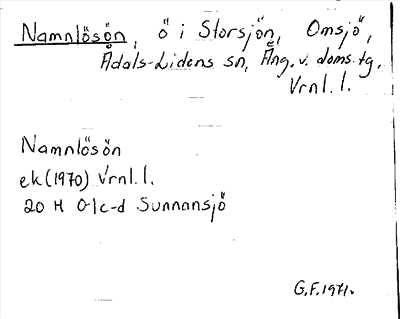 Namnlösön, ö i Storsjön, Omsjö,
Ådals-Lidens sn, Ång. v. doms. tg.
Vrnl. l.
Namnlösön
ek (1970) Vrnl. l.
20 H 0/c-d Sunnansjö
G.F. 1971.